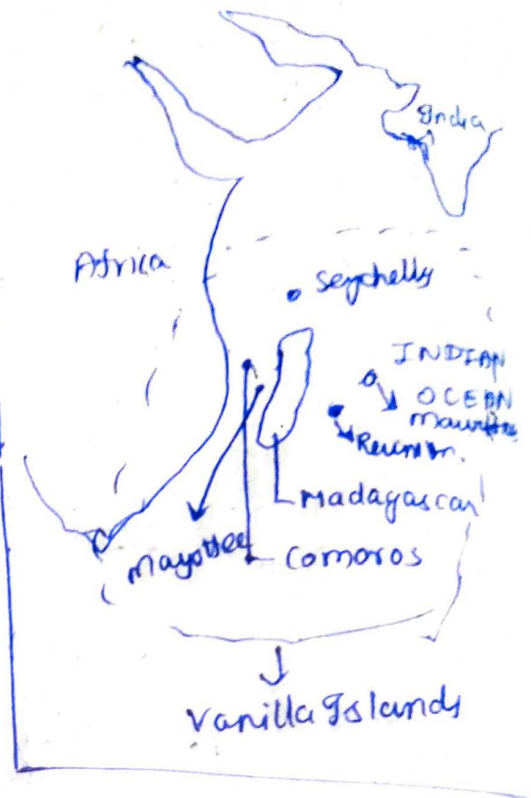 India
Africa
Seychelly
INDIAN
OCEAN
Mauritius
Reunion.
Madagascar
Mayottee
Comoros
Vanilla Islands